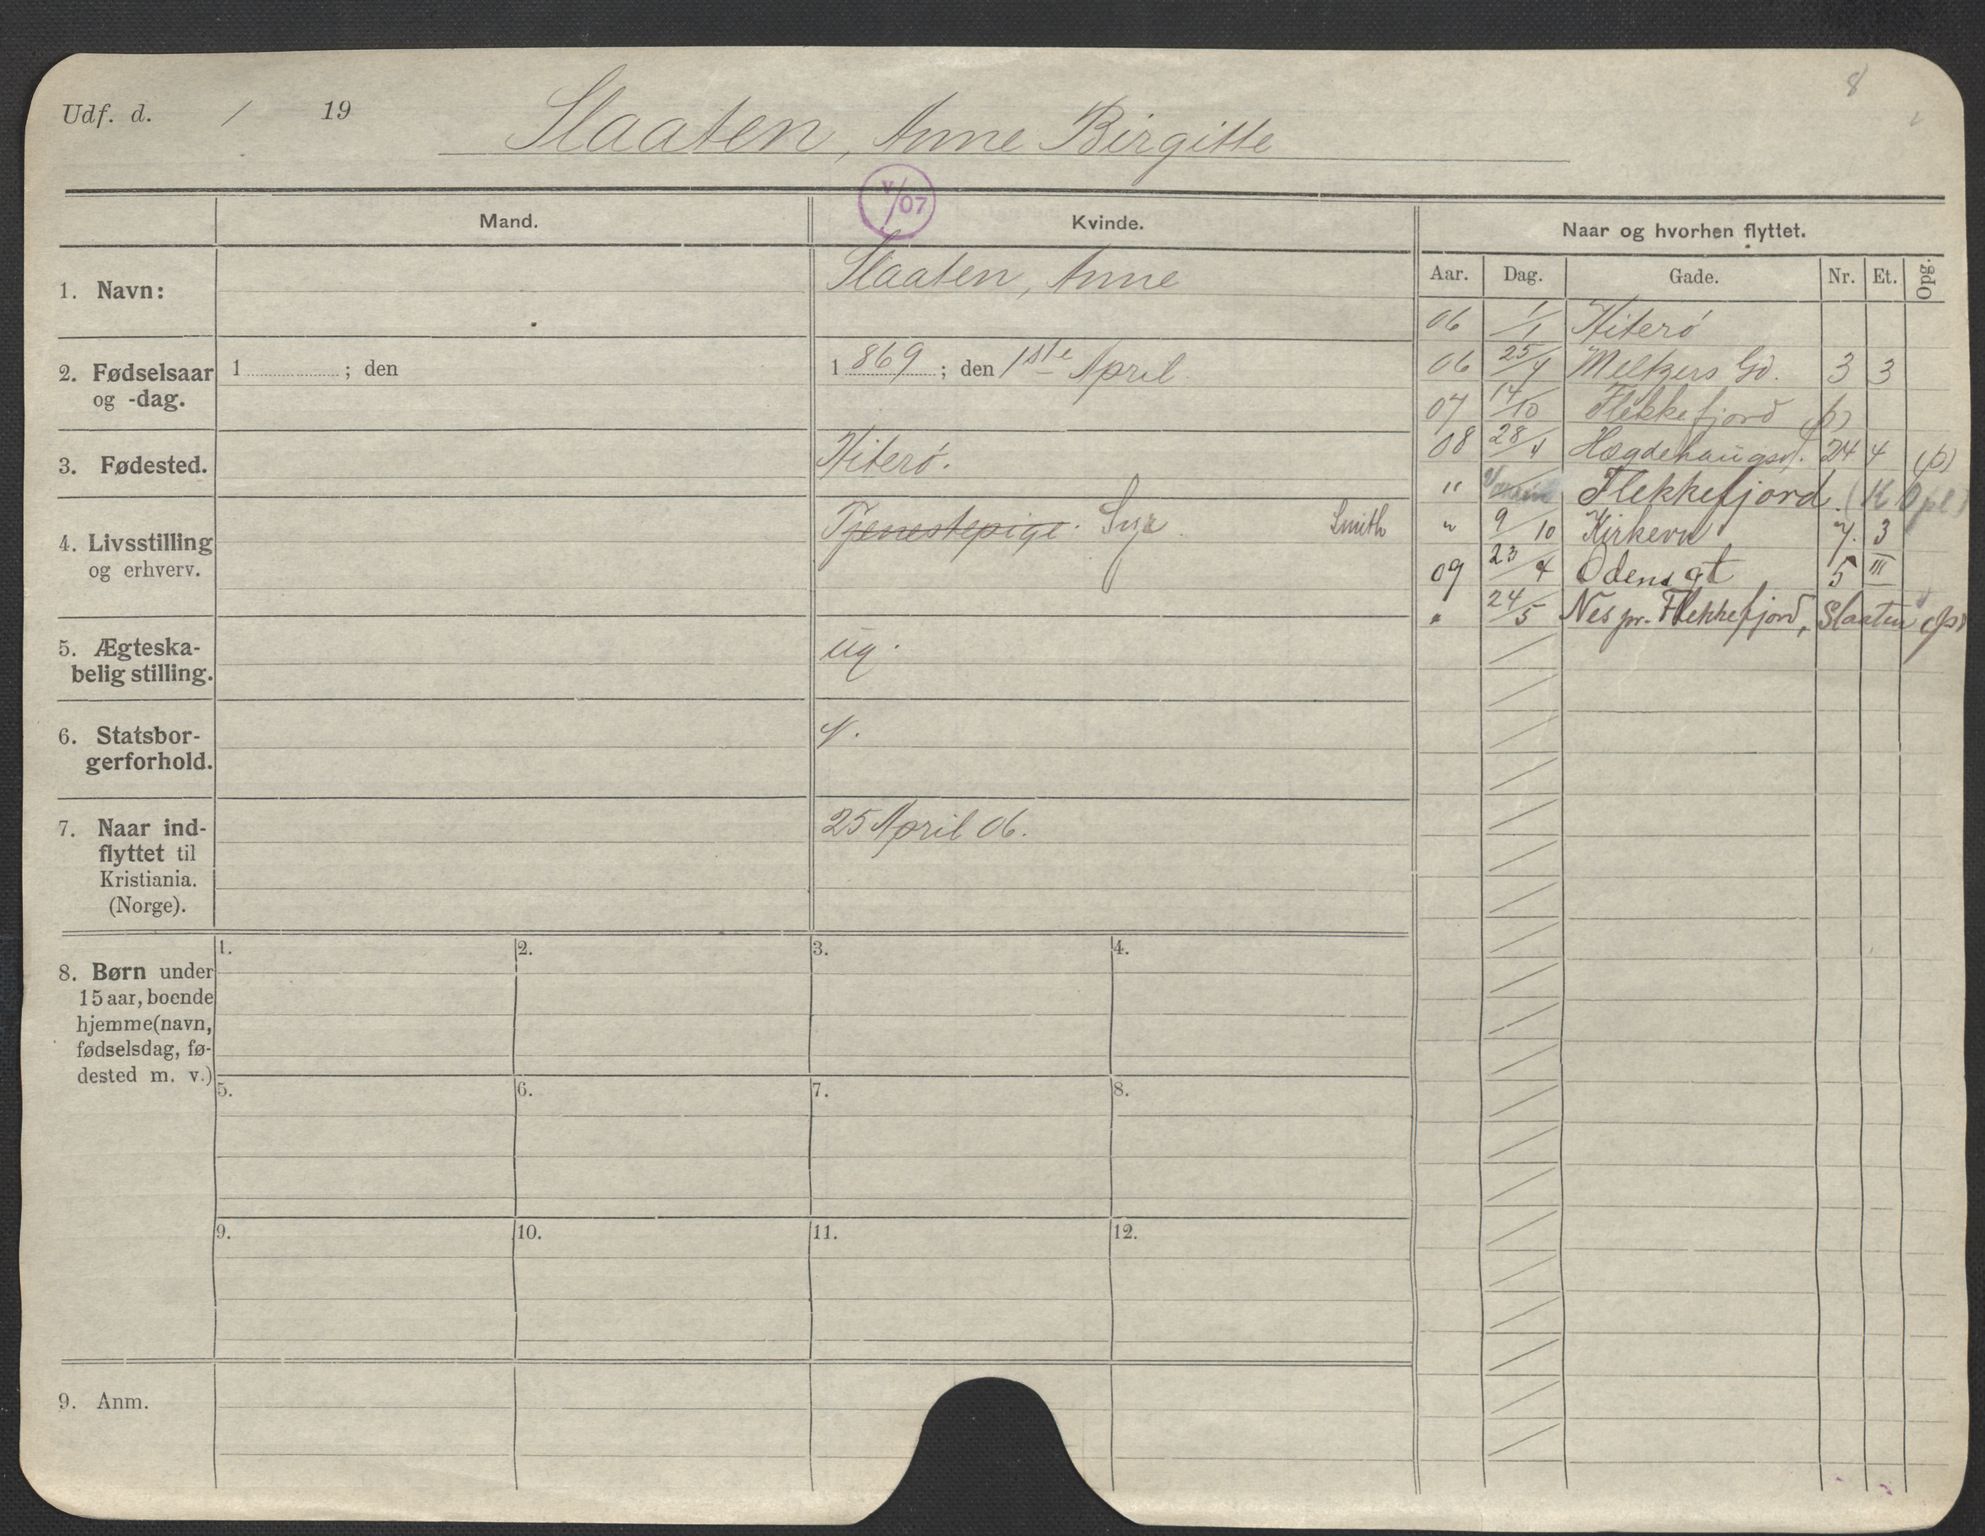 8
Udf. d. / 19 Slaaten, Anne Birgitte
V/07
Mand. Kvinde. Naar og hvorhen flyttet.
Aar. Dag. Gade. Nr. Et. Opg.
1. Navn: Slaaten, Anne
2. Fødselsaar og -dag. 1 ; den 1869; den 1ste April
3. Fødested. Hiterø.
4. Livsstilling og erhverv. Tjenestepige. Sye. Smith
5. Ægteska-
belig stilling. ug.
6. Statsbor-
gerforhold. N.
7. Naar ind-
flyttet til
Kristiania.
(Norge). 25 April 06.
06 1/1 Hiterø
06 25/4 Meltzers Gd. 3 3
07 14/10 Flekkefjord (p)
08 28/4 Hægdehaugsv. 24 4 (p)
" Flekkefjord (K Opl)
" 9/10 Kirkevn 7. 3
09 23/4 Odensgt 5 III
" 24/5 Nes pr. Flekkefjord, Slaaten (p)
8. Børn under
15 aar, boende
hjemme (navn,
fødselsdag, fø-
dested m. v.)
1. 2. 3. 4.
5. 6. 7. 8.
9. 10. 11. 12.
9. Anm.